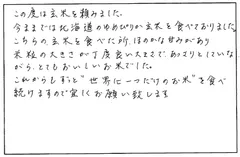 この度は玄米を頼みました。
今までは北海道のゆめぴりか玄米を食べておりました。
こちらの玄米を食べた所、ほのかな甘みがあり
米粒の大きさが丁度良い大きさで、あっさりとしていな
がら、とてもおいしいお米でした。
これからもずっと"世界に一つだけのお米"を食べ
続けますので宜しくお願い致します